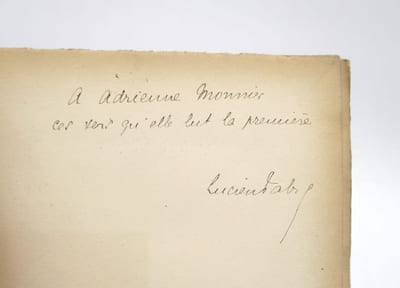 A Adrienne Monnier
ces vers qu'elle lut la première
Lucien Fabre